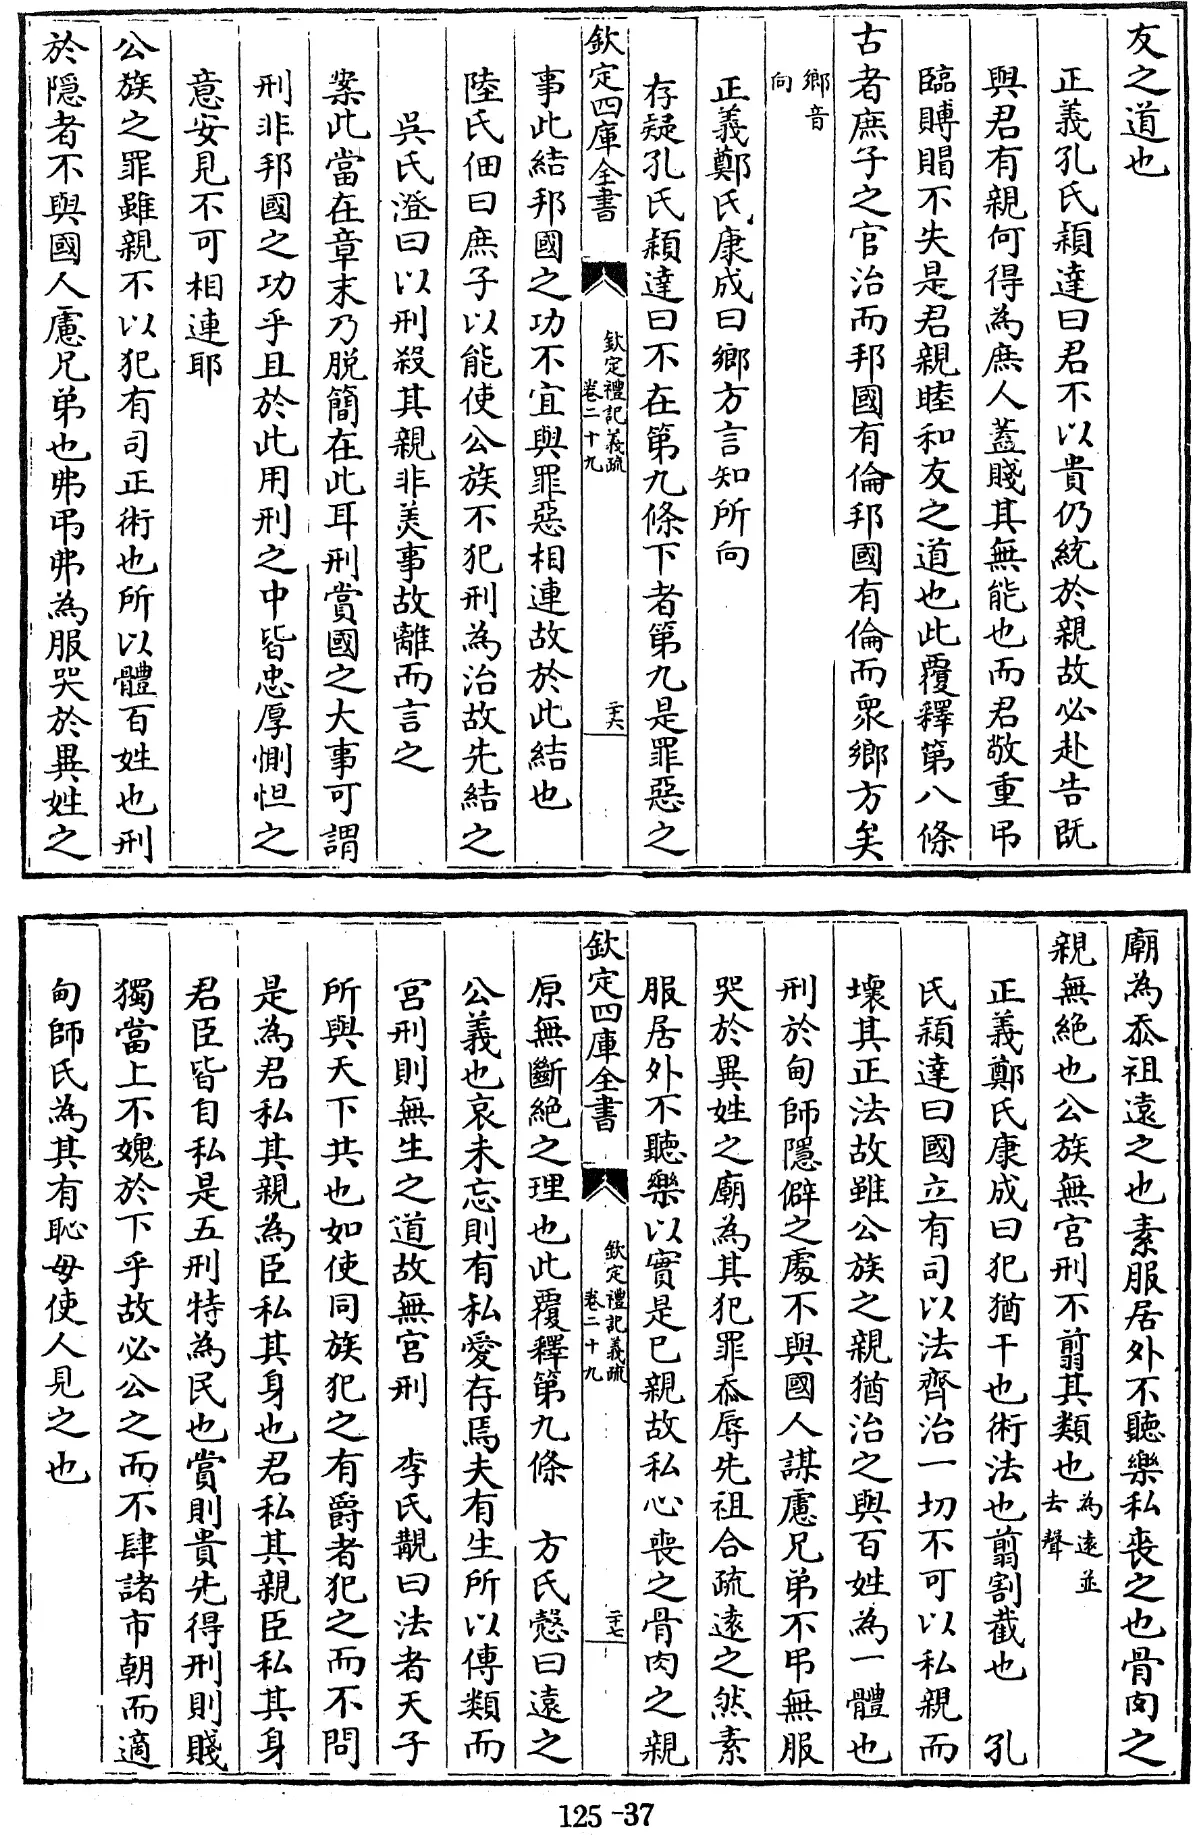 友之道也
正義孔氏穎達曰君不以貴仍統於親故必赴告既
與君有親何得為庶人蓋賤其無能也而君敬重弔
臨賻賵不失是君親睦和友之道也此覆釋第八條
古者庶子之官治而邦國有倫邦國有倫而衆鄉方矣
鄉音
向
正義鄭氏康成曰鄉方言知所向
存疑孔氏穎達曰不在第九條下者第九是罪惡之
欽定四庫全書
欽定禮記義疏
卷二十九
二十六
事此結邦國之功不宜與罪惡相連故於此結也
陸氏佃曰庶子以能使公族不犯刑為治故先結之
吳氏澄曰以刑殺其親非美事故離而言之
案此當在章末乃脱簡在此耳刑賞國之大事可謂
刑非邦國之功乎且於此用刑之中皆忠厚惻怛之
意安見不可相連耶
公族之罪雖親不以犯有司正術也所以體百姓也刑
於隱者不與國人慮兄弟也弗弔弗為服哭於異姓之
廟為忝祖遠之也素服居外不聽樂私喪之也骨肉之
親無絶也公族無宮刑不翦其類也
為遠並
去聲
正義鄭氏康成曰犯猶干也術法也翦割截也 孔
氏穎達曰國立有司以法齊治一切不可以私親而
壞其正法故雖公族之親猶治之與百姓為一體也
刑於甸師隱僻之處不與國人謀慮兄弟不弔無服
哭於異姓之廟為其犯罪忝辱先祖合疏遠之然素
服居外不聽樂以實是已親故私心喪之骨肉之親
欽定四庫全書
欽定禮記義疏
卷二十九
二十七
原無斷絶之理也此覆釋第九條 方氏慤曰遠之
公義也哀未忘則有私愛存焉夫有生所以傳類而
宮刑則無生之道故無宮刑 李氏覯曰法者天子
所與天下共也如使同族犯之有爵者犯之而不問
是為君私其親為臣私其身也君私其親臣私其身
君臣皆自私是五刑特為民也賞則貴先得刑則賤
獨當上不媿於下乎故必公之而不肆諸市朝而適
甸師氏為其有恥毋使人見之也
125-37